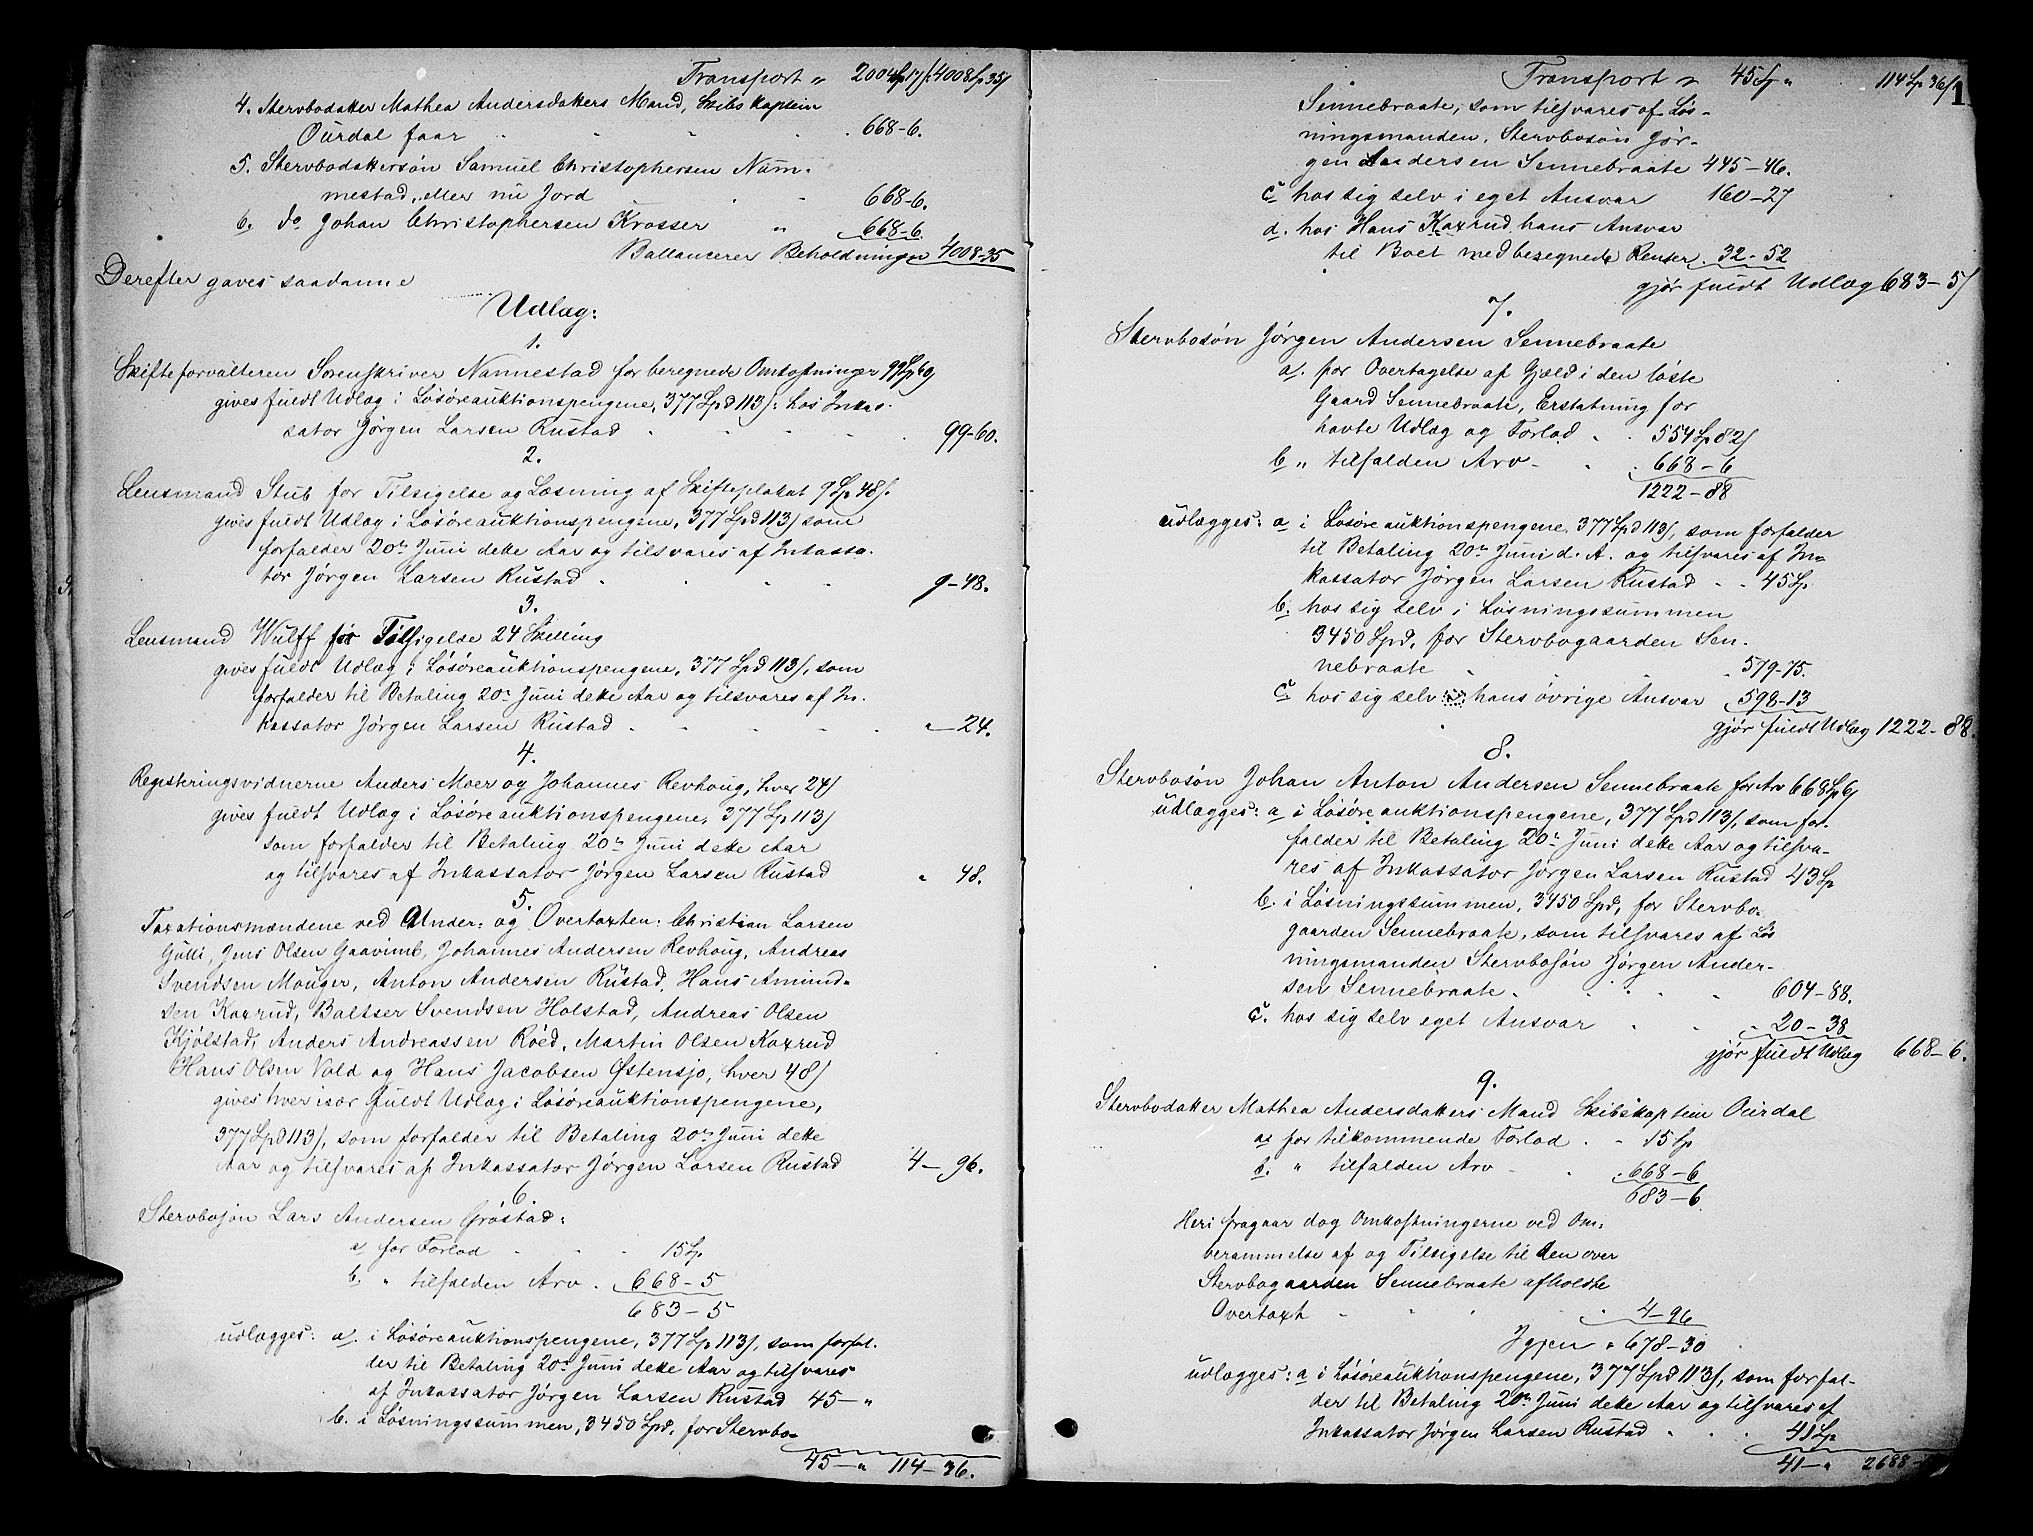 Transport „ 2004 Sp 17 ʃ. 4008 Sp 35 ʃ
4. Stervbodatter Mathea Andersdatters Mand, Skibskaptein
Ourdal faar 668-6.
5. Stervbodattersøn Samuel Christophersen Nam-
mestad, eller nu Jord 668-6.
6. do Johan Christophersen Krosser „ 668-6
Ballancerer Beholdningen 4008-35
Derefter gaves saadanne
Udlæg:
1.
Skifteforvalteren Sorenskriver Nannestad for beregnede Omkostninger 99 Sp 60 ʃ
gives fuldt Udlæg i Løsøreauktionspengene, 377 Spd 113 ʃ: hos Inkas-
sator Jørgen Larsen Rustad 99-60.
2.
Lensmand Stub for Tilsigelse og Læsning af Skifteplakat 9 Sp 48 ʃ.
gives fuldt Udlæg i Løsøreauktionspengene, 377 Spd 113 ʃ som
forfalder 20de Juni dette Aar og tilsvares af Inkassa-
tor Jørgen Larsen Rustad 9-48.
3.
Lensmand Wulff for Tilsigelse 24 Skilling
gives fuldt Udlæg i Løsøreauktionspengene, 377 Spd 113 ʃ, som
forfalder til Betaling 20de Juni dette Aar og tilsvares af In-
kassator Jørgen Larsen Rustad „-24.
4.
Registeringsvidnerne Anders Moer og Johannes Revhoug, hver 24 ʃ
gives fuldt Udlæg i Løsøreauktionspengene, 377 Sp 113 ʃ
som forfalder til Betaling 20de Juni dette Aar
og tilsvares af Inkassator Jørgen Larsen Rustad „ 48.
5.
Taxationsmændene ved Under: og Overtaxten: Christian Larsen
Gulli, Jens Olsen Gaavimb, Johannes Andersen Revhoug, Andreas
Svendsen Mouger, Anton Andersen Rustad, Hans Amund-
sen Kaxrud, Baltser Svendsen Holstad, Andreas Olsen
Kjølstad, Anders Andreassen Røed, Martin Olsen Kaxrud
Hans Olsen Vold og Hans Jacobsen Østensjo, hver 48 ʃ
gives hver især fuldt Udlæg i Løsøreauktionspengene,
377 Spd 113 ʃ, som forfalder til Betaling 20de Juni dette
Aar og tilsvares af Inkassator Jørgen Larsen Rustad 4-96.
6.
Stervbosøn Lars Andersen Grøstad:
a. for Forlod 15 Sp.
b. „ tilfalden Arv. 668-5
683-5
udlægges: a. i Løsøreauktionspengene, 377 Sp 113 ʃ, som forfal-
der til Betaling 20de Juni dette Aar og tilsvares
af Inkassator Jørgen Larsen Rustad 45-„
b. i Løsningssummen, 3450 Spd, for Stervbo-
45-„ 114-36.
Transport „ 45 Sp „ 114 Sp 36 ʃ 1
Sennebraate, som tilsvares af Løs-
ningsmanden, Stervbosøn Jør-
gen Andersen Sennebraate 445-46.
c hos sig selv i eget Ansvar 160-27
d. hos Hans Kaxrud hans Ansvar
til Boet med beregnede Renter 32-52
gjør fuldt Udlæg 683-5 ʃ
7.
Stervbosøn Jørgen Andersen Sennebraate
a. for Overtagelse af Gjæld i den løste
Gaard Sennebraate, Erstatning for
havte Udlæg og Forlod 554 Sp 82 ʃ
b „ tilfalden Arv 668-6
1222-88
udlægges: a i Løsøreauktionspengene, 377 Spd 113 ʃ, som forfalder
til Betaling 20de Juni d. A. og tilsvares af In-
kassator Jørgen Larsen Rustad 45 Sp.
b. hos sig selv i Løsningssummen
3450 Spd, for Stervbogaarden Sen-
nebraate 579-75.
c hos sig selv hans øvrige Ansvar 598-13
gjør fuldt Udlæg 1222-88.
8.
Stervbosøn Johan Anton Andersen Sennebraate for Arv 668 Sp 6 ʃ
udlægges: a i Løsøreauktionspengene, 377 Spd 113 ʃ, som for-
falder til Betaling 20de Juni dette Aar og tilsva-
res af Inkassator Jørgen Larsen Rustad 43 Sp
b. i Løsningssummen, 3450 Spd, for Stervbo-
gaarden Sennebraate, som tilsvares af Løs
ningsmanden Stervbosøn Jørgen Ander-
sen Sennebraate 604-88.
c. hos sig selv eget Ansvar 20-38
gjør fuldt Udlæg 668-6.
9.
Stervbodatter Mathea Andersdatters Mand Skibskaptein Ourdal
a. for tilkommende Forlod 15 Sp
b. „ tilfalden Arv 668-6
683-6
Heri fragaar dog Omkostningerne ved Om-
berammelse af og Tilsigelse til den over
Stervbogaarden Sennebraate afholdte
Overtaxt 4-96
Igjen „ 678-30
udlægges: a i Løsøreauktionspengene, 377 Spd 113 ʃ, som forfal-
der til Betaling 20de Juni dette Aar og tilsvares af
Inkassator Jørgen Larsen Rustad 41 Sp
41-„ 2688-